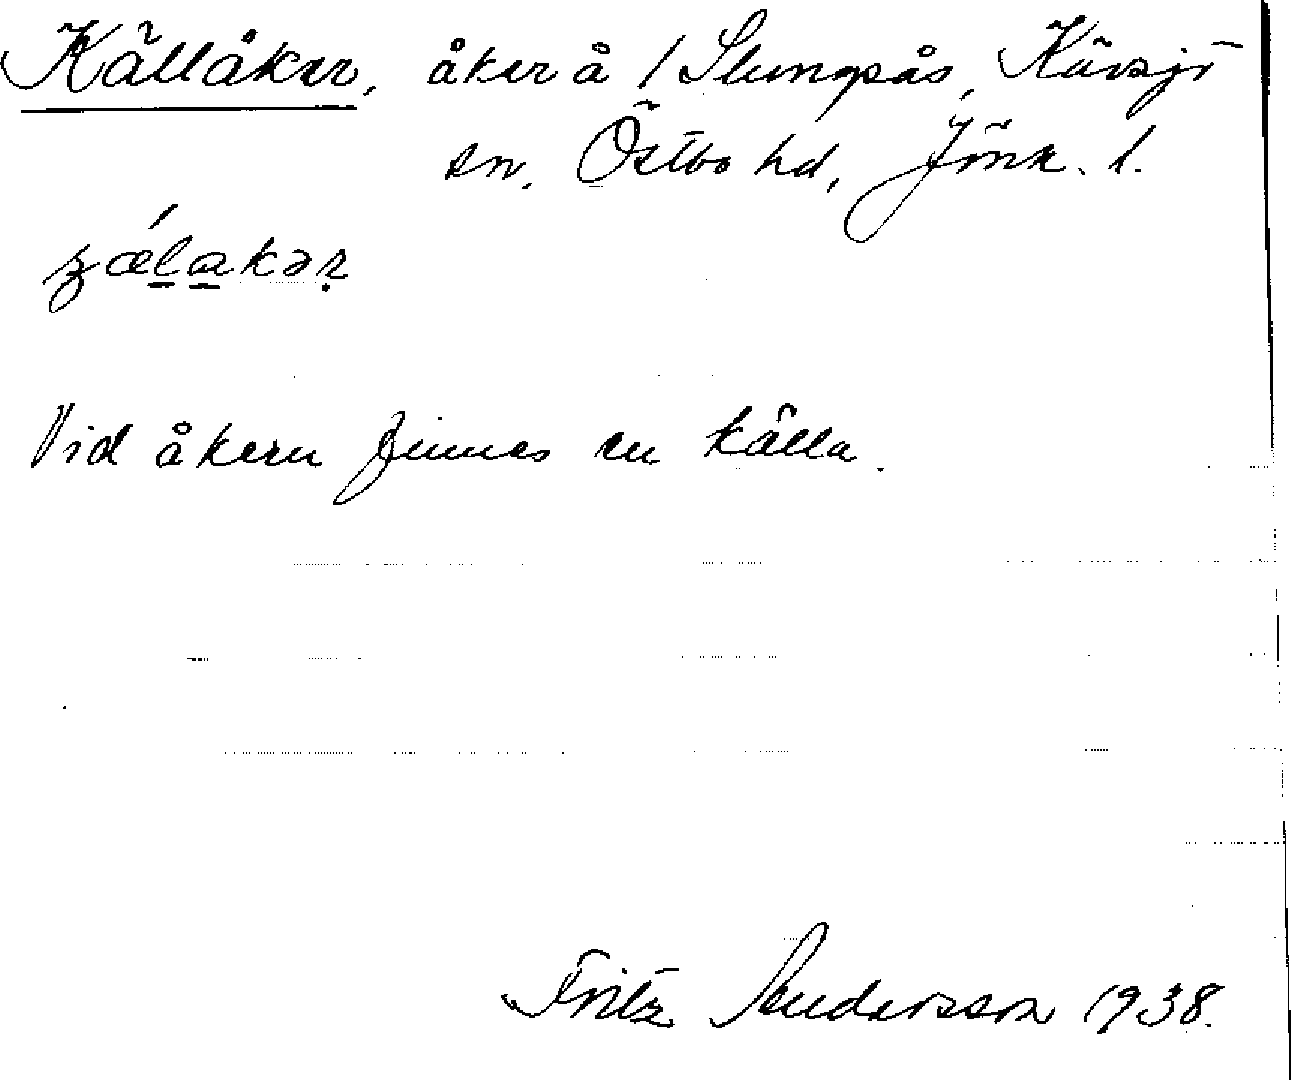 Källåker, åker å / Slungsås, Kävsjö
sn. Östbo hd, Jönk. l.
Vid åkern finnes en källa.
Fritz Andersson 1938.